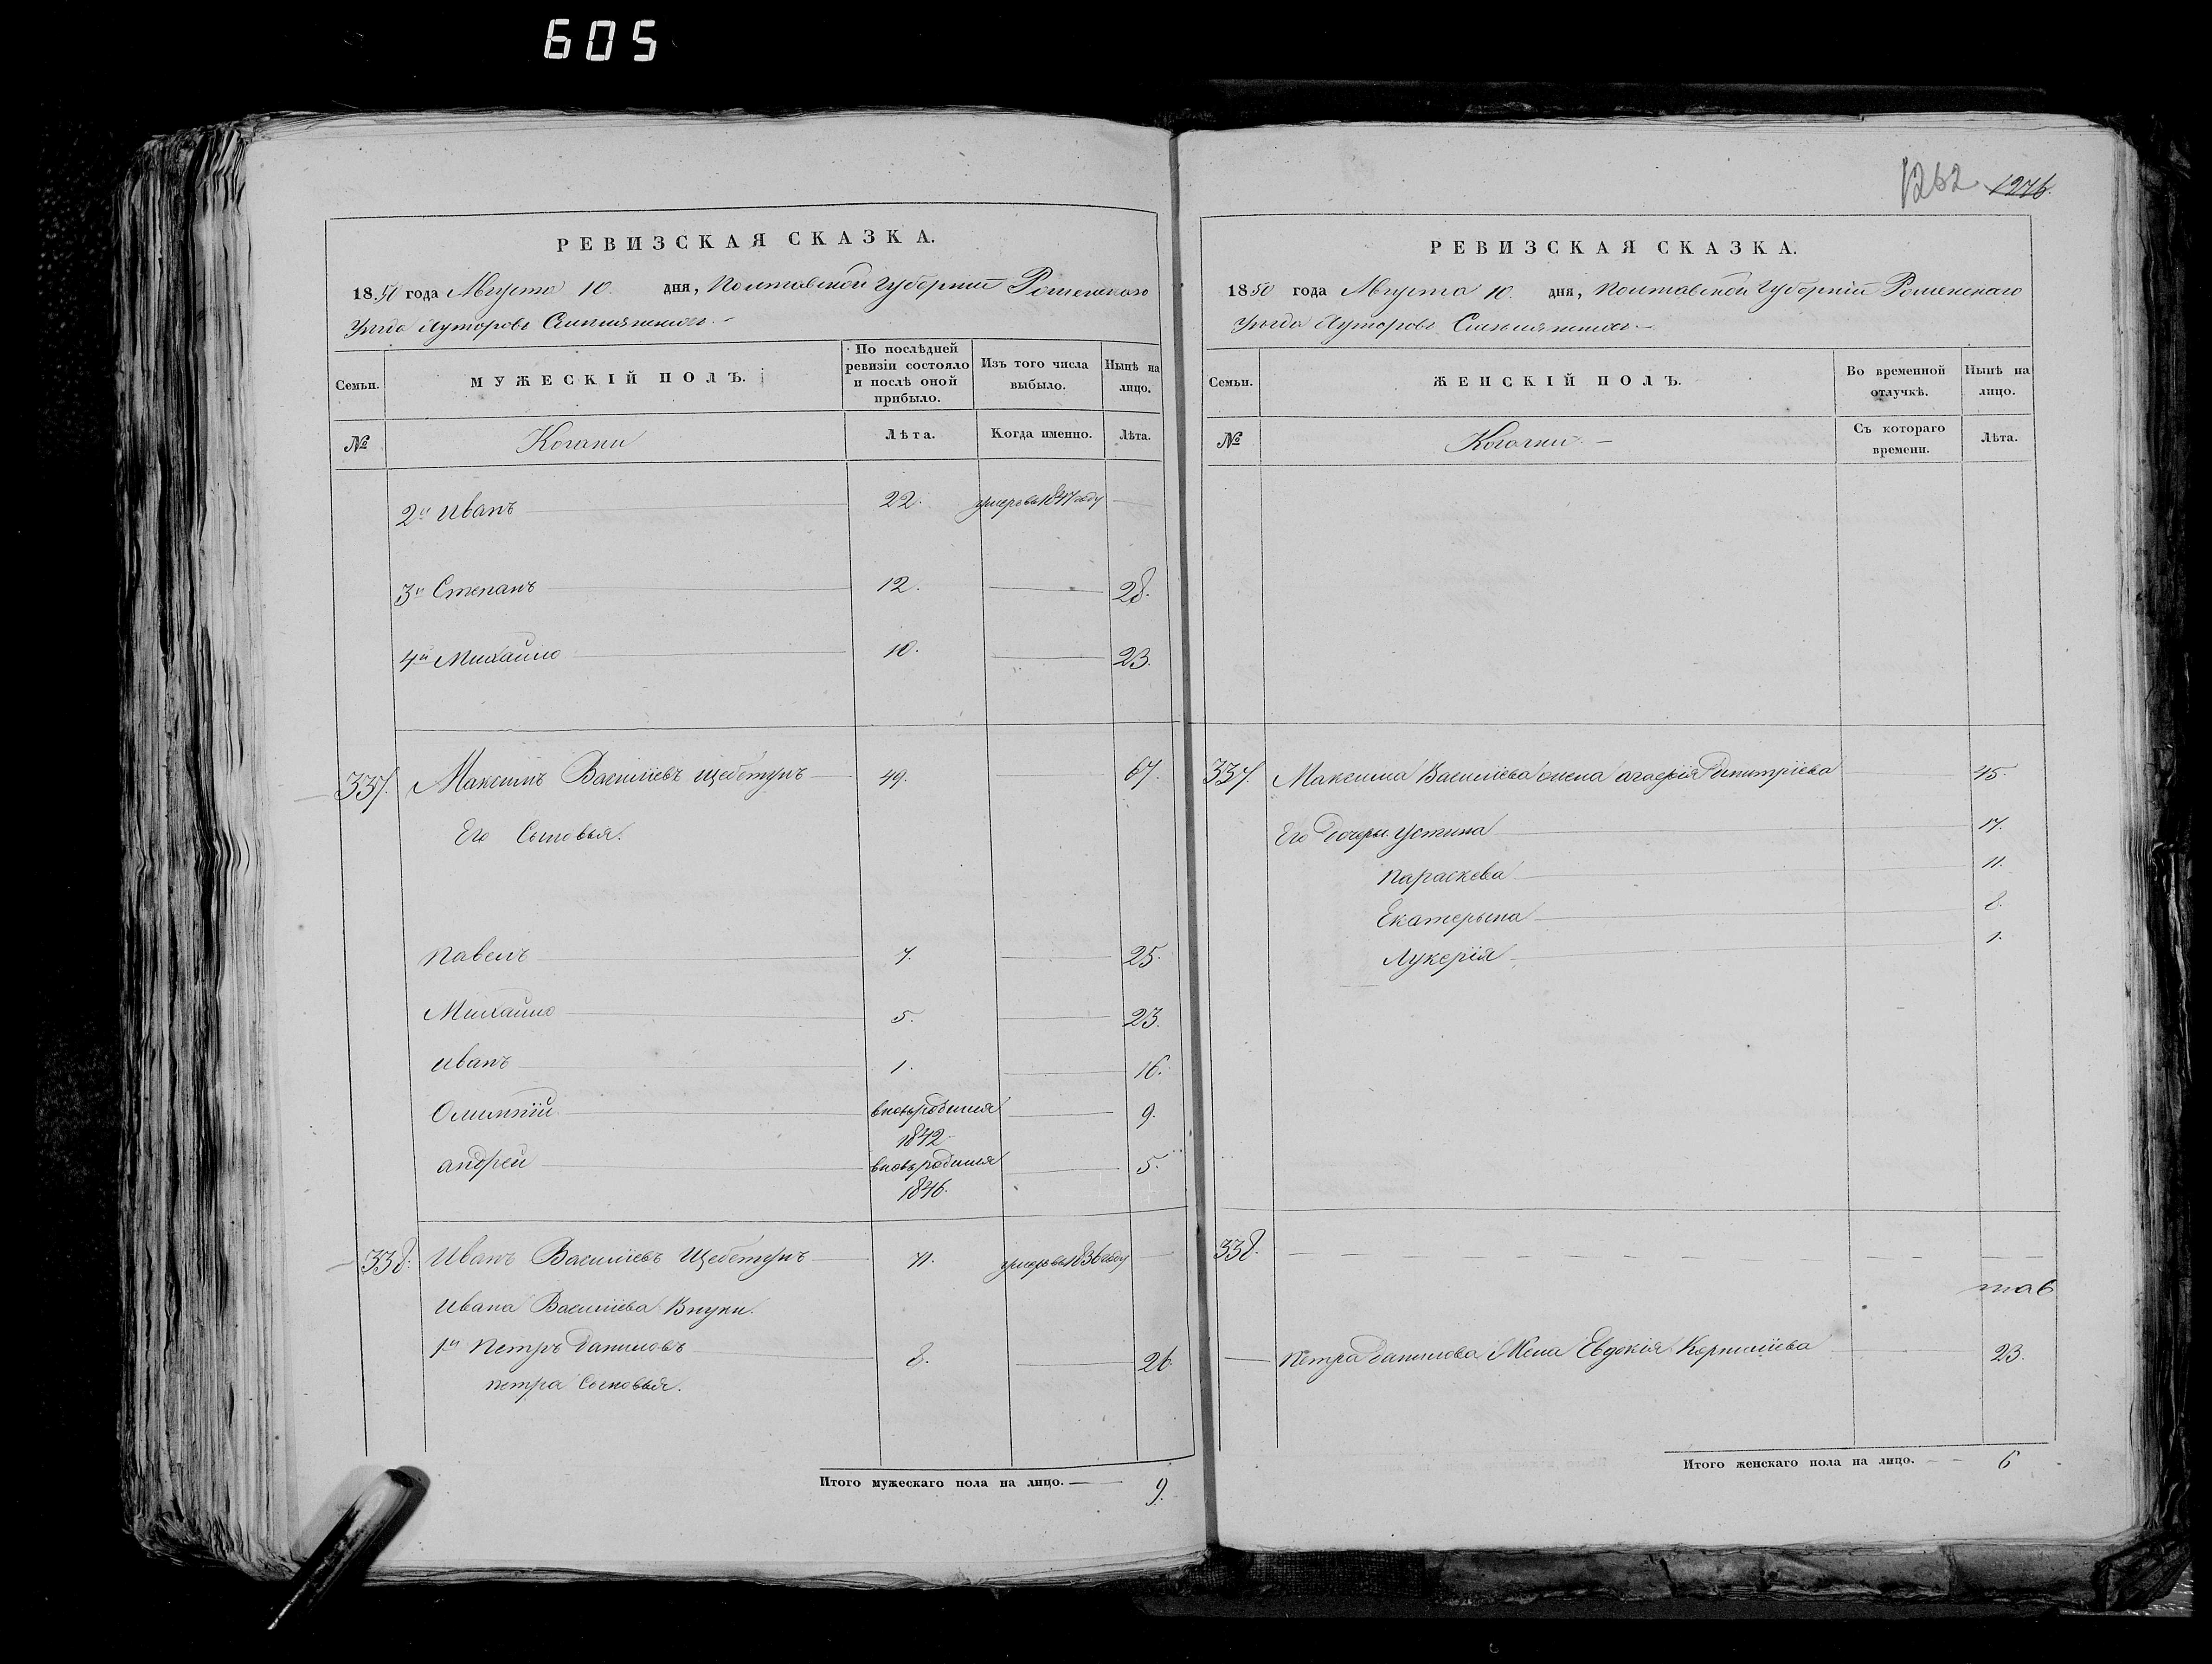 605
1262 1276.
РЕВИЗСКАЯ СКАЗКА.
1850 года Августа 10. дня, Полтавской Губернии Роменского
Уезда Хуторовъ
Семьи.
МУЖЕСКІЙ ПОЛЪ.
По послѣдней ревизіи состояло и послѣ оной прибыло.
Изъ того числа выбыло.
Нынѣ на лицо.
№
Козаки
Лѣта.
Когда именно.
Лѣта.
2й Иванъ 22. умеръ въ 1847 году
3й Степанъ 12. 28.
4й Михайло 10. 23.
337. Максимъ Василіевъ Щебетунъ 49. 67.
Его Сыновья.
Павелъ 7. 25.
Михайло 5. 23.
Иванъ 1. 16.
Олимпій вновь родился 1842 9.
Андрей вновь родился 1846. 5.
338. Иванъ Василіевъ Щебетунъ 71. умеръ въ 1836 году
Ивана Василіева Внуки.
1й Петръ Даниловъ 8. 26
Петра Сыновья.
Итого мужескаго пола на лицо. 9.
РЕВИЗСКАЯ СКАЗКА.
1850 года Августа 10. дня, Полтавской Губерніи Роменскаго
Уезда Хуторовъ
Семьи.
ЖЕНСКІЙ ПОЛЪ.
Во временной отлучкѣ.
Нынѣ на лицо.
№
Козачки
Съ котораго времени.
Лѣта.
337. Максима Василіева жена Агафія Дмитріева 45.
Его дочеры Устина 17.
Параскева 11.
Екатерына 8.
Лукерія 1.
338.
Петра Данилова Жена Евдокія Корниліева 23.
Итого женскаго пола на лицо. 6